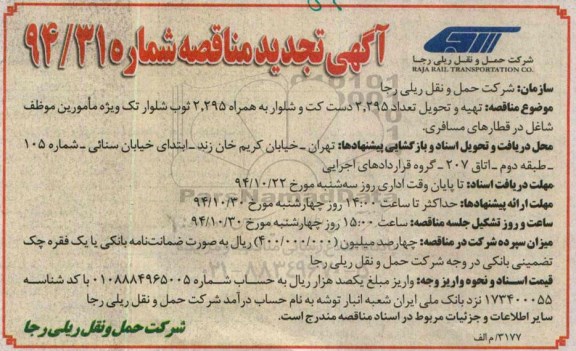 آگهی تجدید مناقصه شماره ۹۴/۳۱
شرکت حمل و نقل ریلی رجا
RAJA RAIL TRANSPORTATION CO.
سازمان: شرکت حمل و نقل ریلی رجا
موضوع مناقصه: تهیه و تحویل تعداد ۲,۲۹۵ دست کت و شلوار به همراه ۲,۲۹۵ ثوب شلوار تک ویژه مأمورین موظف
شاغل در قطارهای مسافری.
محل دریافت و تحویل اسناد و بازگشایی پیشنهادها: تهران ـ خیابان کریم خان زند ـ ابتدای خیابان سنائی ـ شماره ۱۰۵
ـ طبقه دوم ـ اتاق ۲۰۷ ـ گروه قراردادهای اجرایی
مهلت دریافت اسناد: تا پایان وقت اداری روز سه‌شنبه مورخ ۹۴/۱۰/۲۲
مهلت ارائه پیشنهادها: حداکثر تا ساعت ۱۴:۰۰ روز چهارشنبه مورخ ۹۴/۱۰/۳۰
ساعت و روز تشکیل جلسه مناقصه: ساعت ۱۵:۰۰ روز چهارشنبه مورخ ۹۴/۱۰/۳۰
میزان سپرده شرکت در مناقصه: چهارصد میلیون (۴۰۰/۰۰۰/۰۰۰) ریال به صورت ضمانت‌نامه بانکی یا یک فقره چک
تضمینی بانکی در وجه شرکت حمل و نقل ریلی رجا
قیمت اسناد و نحوه واریز وجه: واریز مبلغ یکصد هزار ریال به حساب شماره ۰۱۰۸۸۸۴۹۶۵۰۰۵ با کد شناسه
۱۷۳۴۰۰۰۵۵ نزد بانک ملی ایران شعبه انبار توشه به نام حساب درآمد شرکت حمل و نقل ریلی رجا
سایر اطلاعات و جزئیات مربوط در اسناد مناقصه مندرج است.
۳۱۷۷/م الف
شرکت حمل و نقل ریلی رجا